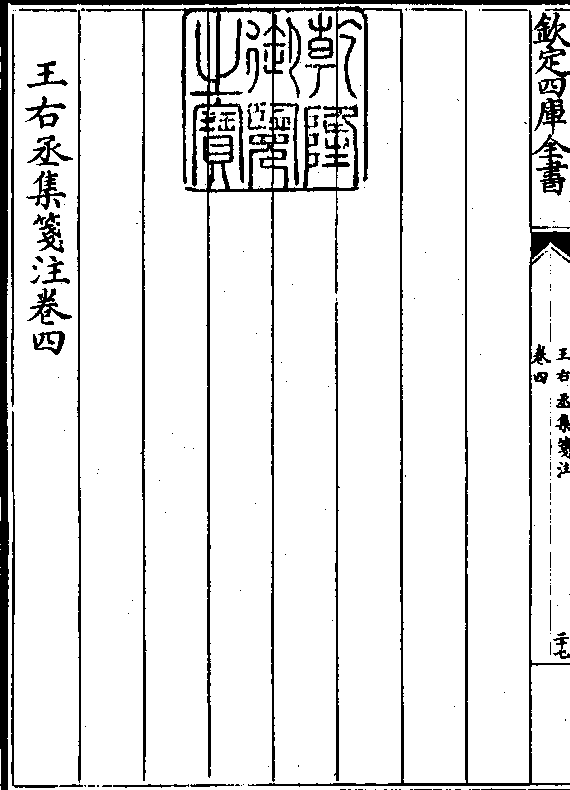 欽定四庫全書
王右丞集箋注
卷四
二十七
乾隆
御覽
之寶
王右丞集箋注卷四